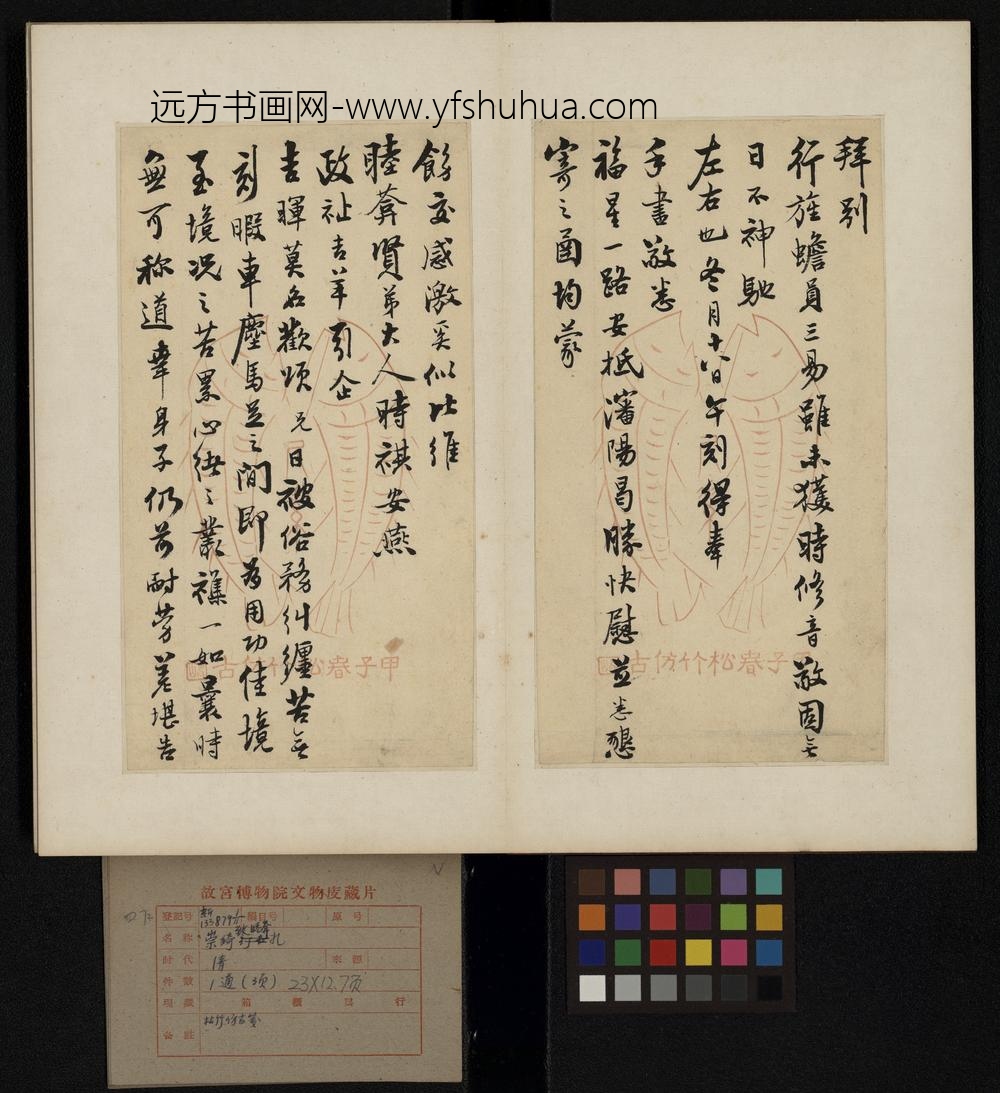 远方书画网-www.yfshuhua.com
拜别
行旌蟾員三易雖未獲時修音敬固無
日不神馳
左右也冬月十八日午刻得奉
手書敬悉
福星一路安抵瀋陽曷勝快慰並悉懇
寄之函均蒙
飭交感激奚似比維
睦葊賢弟大人時祺安燕
政祉吉羊引企
吉暉莫名歡頌兄日被俗務糾纏苦無
刻暇車塵馬足之間即為用功佳境
至境況之苦累心緒之叢襍一如曩時
無可称道幸身子仍前耐劳差堪告
甲子春松竹仿古
甲子春松竹仿古
故宮博物院文物庋藏片
登記号 新 編目号 原号
名称 崇绮致睦葊札
时代 清 來源
件数 1通(3页) 23X12.7页
現藏 箱 櫃 层 行
备註 松竹仿古笺